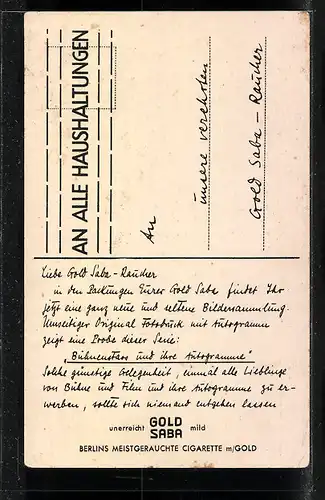 AN ALLE HAUSHALTUNGEN
An
unsere verehrten
Gold Saba-Raucher
Liebe Gold Saba-Raucher
in den Packungen Eurer Gold Saba findet Ihr
jetzt eine ganz neue und seltene Bildersammlung.
Umseitiger Original Fotodruck mit Autogramm
zeigt eine Probe dieser Serie:
„Bühnenstars und ihre Autogramme"
Solche günstige Gelegenheit, einmal alle Lieblinge
von Bühne und Film und ihre Autogramme zu er-
werben, sollte sich niemand entgehen lassen
unerreicht GOLD SABA mild
BERLINS MEISTGERAUCHTE CIGARETTE m/GOLD